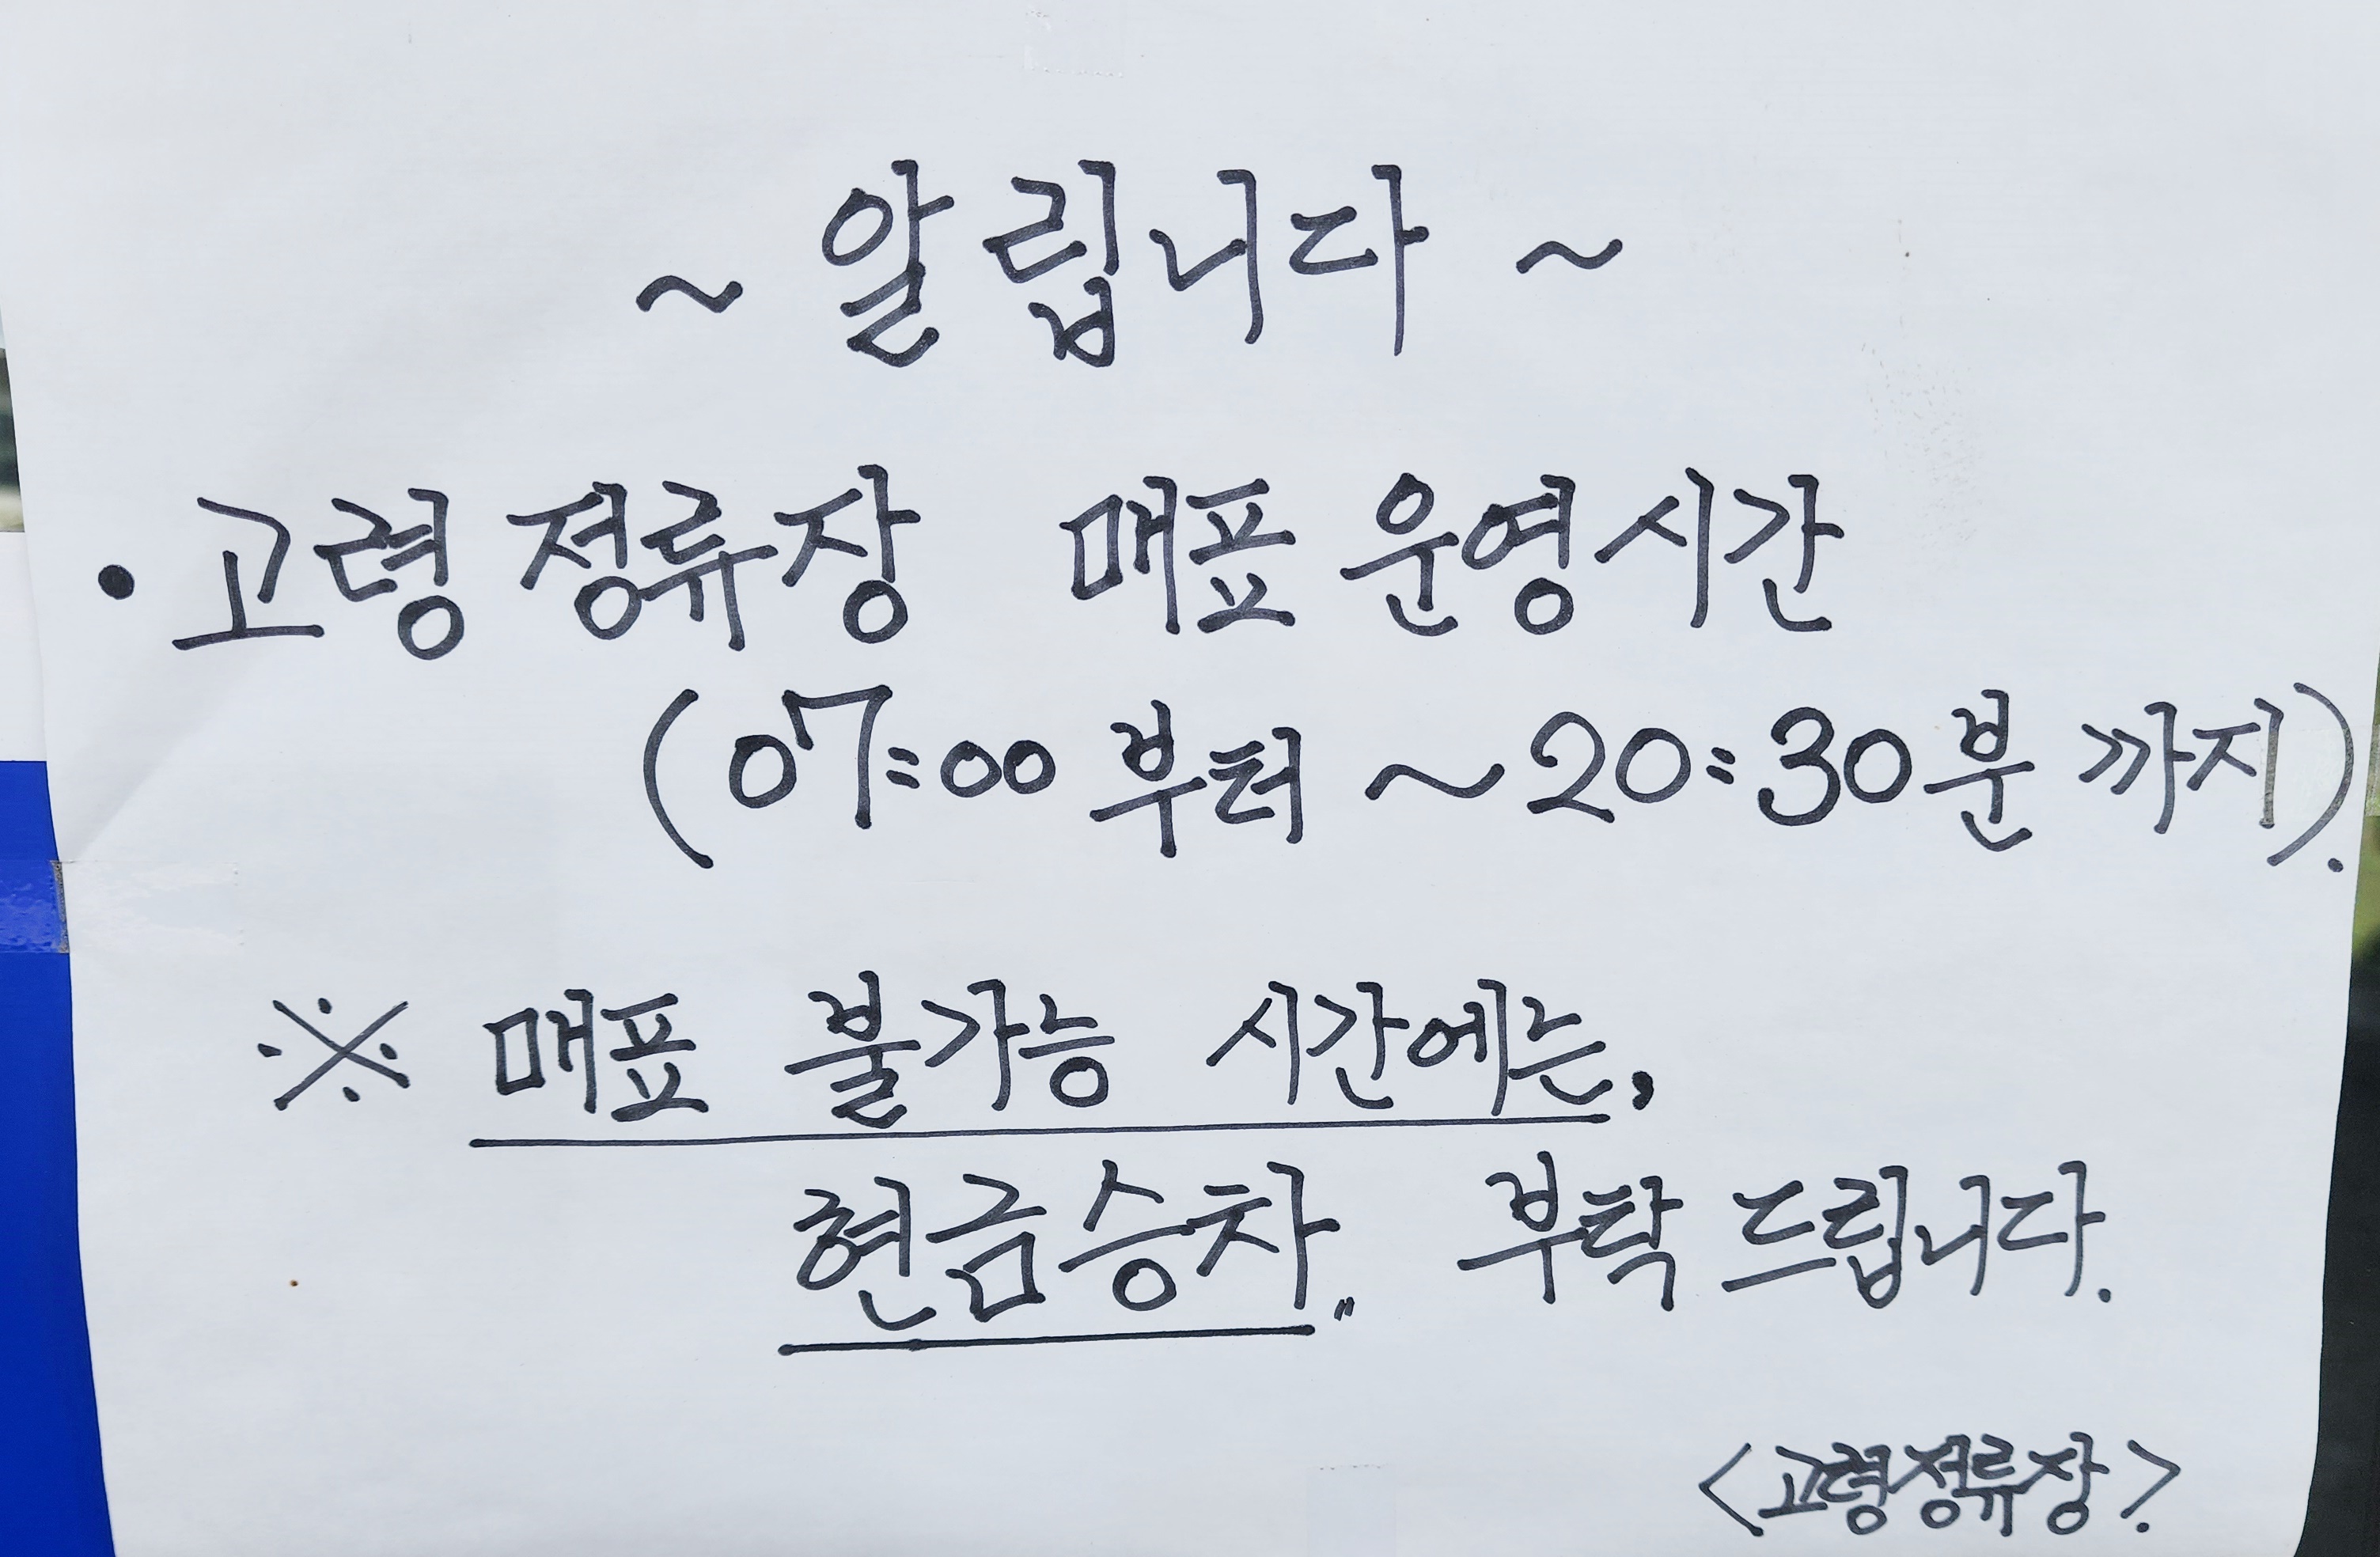 ~ 알립니다 ~
• 고령 정류장 매표 운영시간
(07:00 부터 ~ 20:30분 까지).
※ 매표 불가능 시간에는,
현금승차〃 부탁 드립니다.
<고령정류장>.